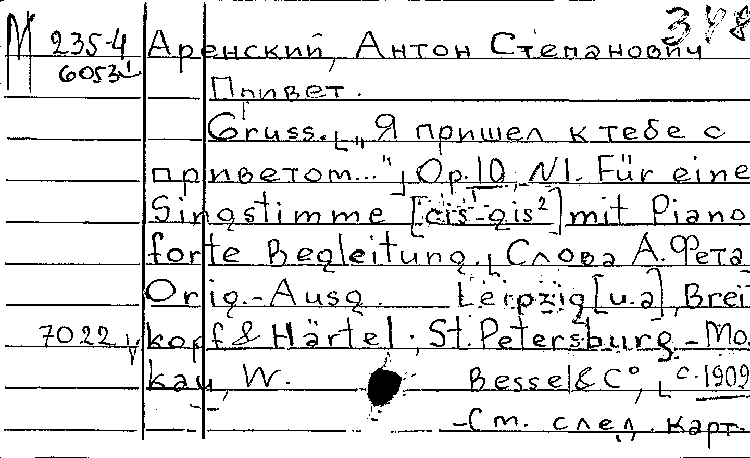 М 235-4 Аренский, Антон Степанович 348
6053
Привет.
Gruss. „Я пришел к тебе с
приветом...", Op. 10, N1. Für eine
Singstimme [cis¹-gis²] mit Piano
forte Begleitung. Слова А. Фета
Orig.-Ausg. Leipzig [u.a], Brei
7022 kopf & Härtel. St. Petersburg - Mo.
kau, W. Bessel & C°, c. 1909
-См. след. карт.